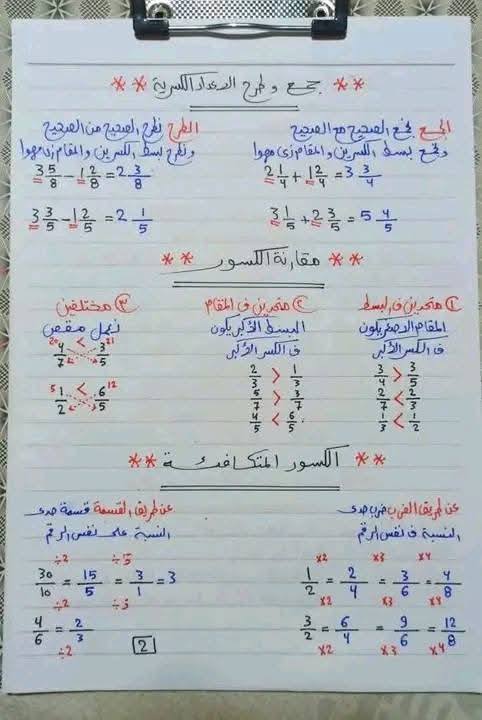 ** جمع وطرح الأعداد الكسرية **
الجمع نجمع الصحيح مع الصحيح
ونجمع بسط الكسرين والمقام زى مهوا
2 1/4 + 1 2/4 = 3 3/4
3 1/5 + 2 3/5 = 5 4/5
الطرح نطرح الصحيح من الصحيح
ونطرح بسط الكسرين والمقام زى مهوا
3 5/8 - 1 2/8 = 2 3/8
3 3/5 - 1 2/5 = 2 1/5
** مقارنة الكسور **
① متحدين فى البسط
المقام الاصغر يكون
فى الكسر الأكبر
3/4 > 3/5
2/7 < 2/3
1/3 < 1/2
② متحدين فى المقام
البسط الأكبر يكون
فى الكسر الأكبر
2/3 > 1/3
5/7 > 3/7
4/5 < 6/5
③ مختلفين
نعمل مقص
20 4/7 < 3/5 21
5 1/2 < 6/5 12
** الكسور المتكافئة **
عن طريق الضرب ضرب حدى
النسبة فى نفس الرقم
×2 ×3 ×4
1/2 = 2/4 = 3/6 = 4/8
×2 ×3 ×4
3/2 = 6/4 = 9/6 = 12/8
×2 ×3 ×4
عن طريق القسمة قسمة حدى
النسبة على نفس الرقم
÷2 ÷5
30/10 = 15/5 = 3/1 = 3
÷2 ÷5
4/6 = 2/3
÷2
2